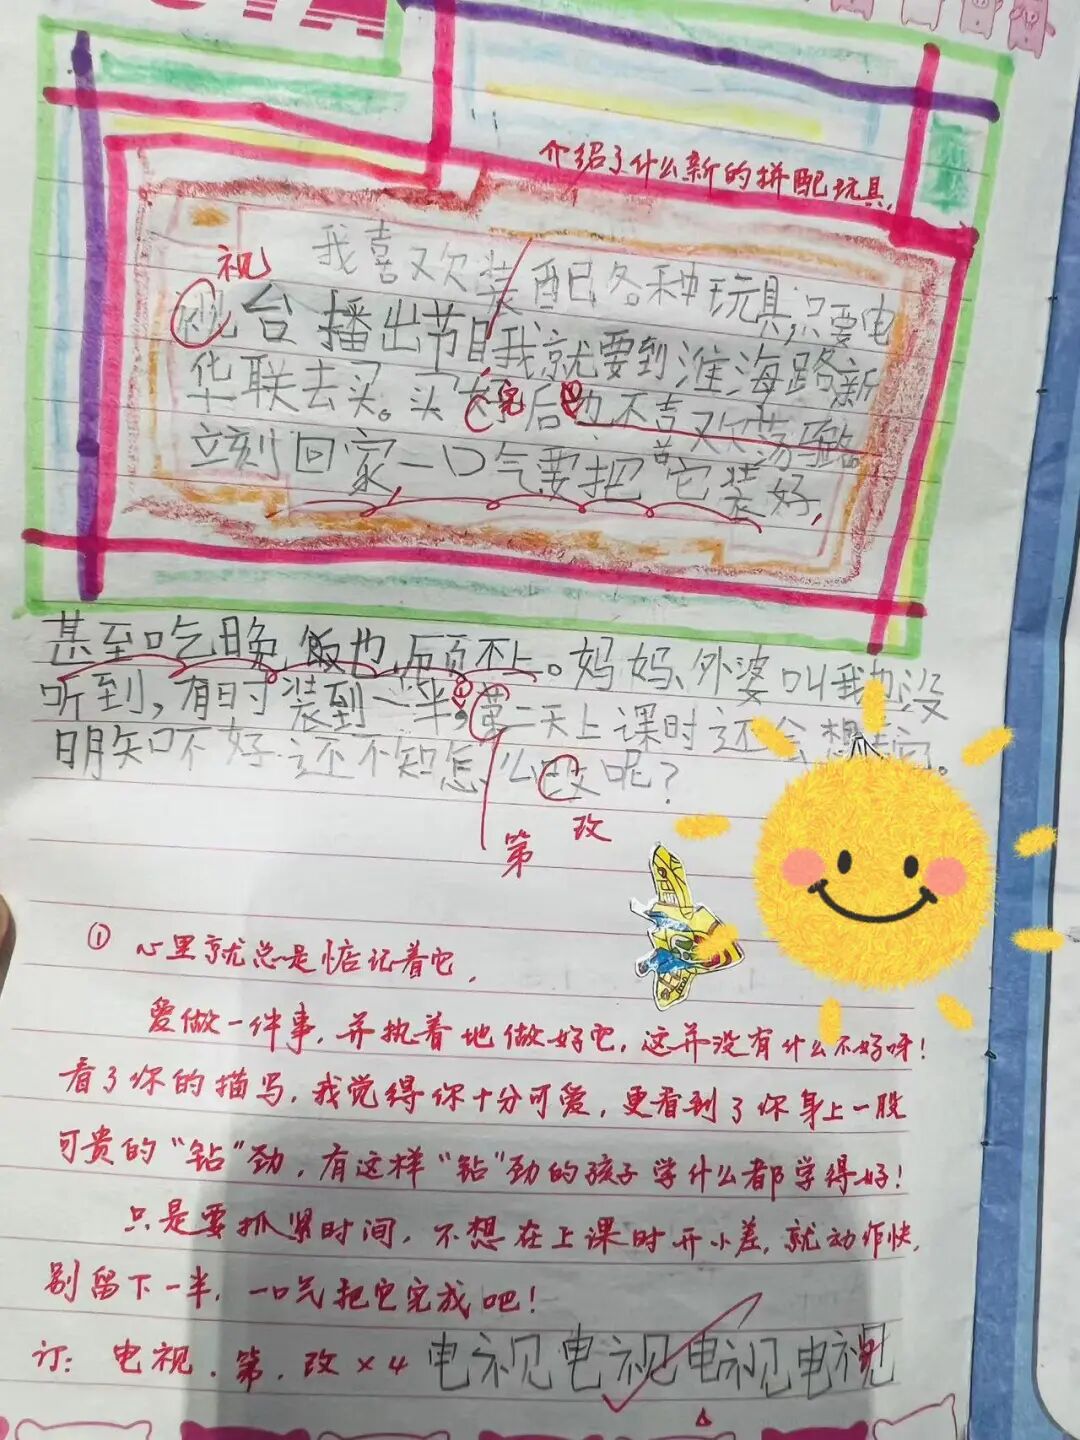 介绍了什么新的拼配玩具,
视
我喜欢装配各种玩具,只要电
台播出节目我就要到淮海路新
华联去买。买好后也不喜欢荡马路
完
立刻回家一口气要把它装好,
甚至吃晚饭也顾不上。妈妈、外婆叫我也没
听到,有时装到一半,第二天上课时还会想
明知不好还不知怎么改呢?
改
第
① 心里就总是惦记着它,
爱做一件事,并执着地做好它,这并没有什么不好呀!
看了你的描写,我觉得你十分可爱,更看到了你身上一股
可贵的“钻”劲,有这样“钻”劲的孩子学什么都学得好!
只是要抓紧时间,不想在上课时开小差,就动作快,
别留下一半,一口气把它完成吧!
订: 电视.第.改×4 电视电视电视电视